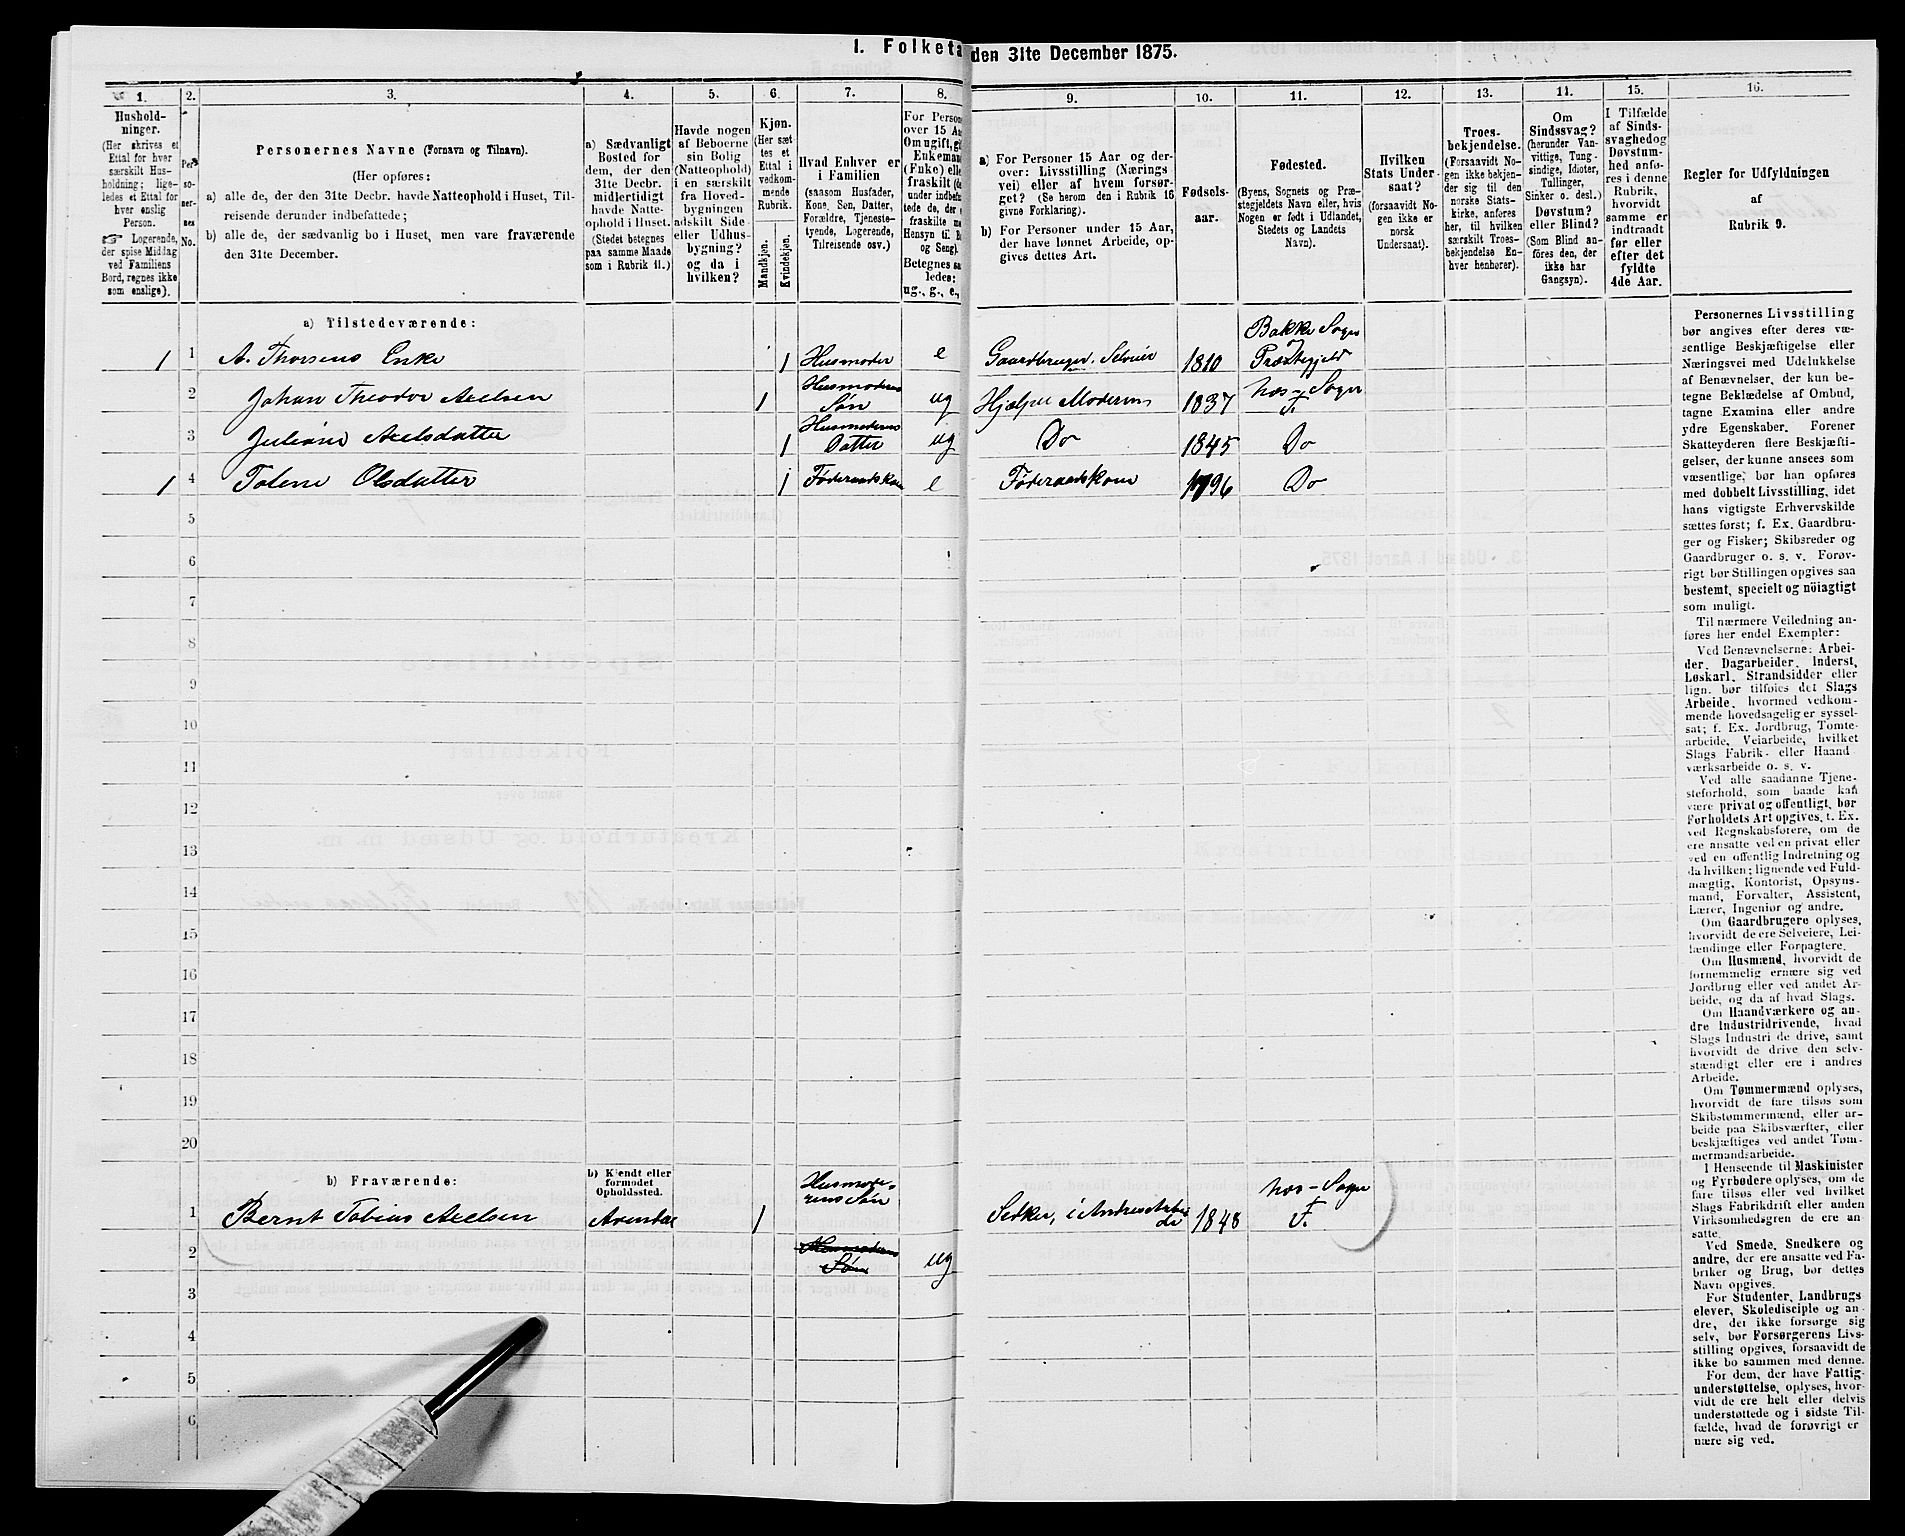 I. Folketæ den 31te December 1875.
1. 2. 3. 4. 5. 6. 7. 8. 9. 10. 11. 12. 13. 14. 15. 16.
Hushold-
ninger.
(Her skrives et
Ettal for hver
særskilt Hus-
holdning; lige-
ledes et Ettal for
hver enslig
Person.
Logerende,
der spise Middag
ved Familiens
Bord, regnes ikke
som enslige).
Per-
so-
ner-
nes
No.
Personernes Navne (Fornavn og Tilnavn).
(Her opføres:
a) alle de, der den 31te Decbr. havde Natteophold i Huset, Til-
reisende derunder indbefattede;
b) alle de, der sædvanlig bo i Huset, men vare fraværende
den 31te December.
a) Sædvanligt
Bosted for
dem, der den
31te Decbr.
midlertidigt
havde Natte-
ophold i Huset.
(Stedet betegnes
paa samme Maade
som i Rubrik 11.)
Havde nogen
af Beboerne
sin Bolig
(Natteophold)
i en særskilt
fra Hoved-
bygningen
adskilt Side-
eller Udhus-
bygning?
og da i
hvilken?
Kjøn.
(Her sæt-
tes et
Ettal i
vedkom-
mende
Rubrik.
Mandkjøn.
Kvindekjøn.
Hvad Enhver er
i Familien
(saasom Husfader,
Kone, Søn, Datter,
Forældre, Tjeneste-
tyende, Logerende,
Tilreisende osv.)
For Person
over 15 Aa
Om ugift, gi
Enkeman
(Enke) elle
fraskilt (de
under indbefat-
tede de, der e
fraskilte m
Hensyn til B
og Seng).
Betegnes saa
ledes:
ug., g., e.,
a) For Personer 15 Aar og der-
over: Livsstilling (Nærings
vei) eller af hvem forsør-
get? (Se herom den i Rubrik 16
givne Forklaring).
b) For Personer under 15 Aar,
der have lønnet Arbeide, op-
gives dettes Art.
Fødsels-
aar.
Fødested.
(Byens, Sognets og Præ-
stegjeldets Navn eller, hvis
Nogen er født i Udlandet,
Stedets og Landets
Navn).
Hvilken
Stats Under-
saat?
(forsaavidt No-
gen ikke er
norsk
Undersaat).
Troes-
bekjendelse.
(Forsaavidt No-
gen ikke bekjen-
der sig til den
norske Stats-
kirke, anføres
her, til hvilken
særskilt Troes-
bekjendelse En-
hver henhører).
Om
Sindssvag?
(herunder Van-
vittige, Tung-
sindige, Idioter,
Tullinger,
Sinker o. desl.)
Døvstum?
eller Blind?
(Som Blind an-
føres den, der
ikke har
Gangsyn).
I Tilfælde
af Sinds-
svaghed og
Døvstum-
hed anfø-
res i denne
Rubrik,
hvorvidt
samme er
indtraadt
før eller
efter det
fyldte
4de Aar.
Regler for Udfyldningen
af
Rubrik 9.
a) Tilstedeværende:
Bakke Sogn
1 1 A. Thorsens Enke 1 Husmoder e Gaardbruger, Selveier 1810 Præstegjeld
Husmoderens Næs-Sogn
2 Johan Theodor Axelsen 1 Søn ug Hjælper Moderen 1837 F.
Husmoderens
3 Juliane Axelsdatter 1 Datter ug Do 1845 Do
1 4 Tolene Olsdatter 1 Føderaadskone e Føderaadskone 1796 Do
5
6
7
8
9
10
11
12
13
14
15
16
17
18
19
20
b) Fraværende:
b) Kjendt eller
formodet
Opholdssted.
Husmode-
rens Søn Næs-Sogn
1 Bernt Tobias Axelsen Arendal 1 1848 F.
2 Husmoderens
Søn ug
3
4
5
6
Personernes Livsstilling
bør angives efter deres væ-
sentlige Beskjæftigelse eller
Næringsvei med Udelukkelse
af Benævnelser, der kun be-
tegne Beklædelse af Ombud,
tagne Examina eller andre
ydre Egenskaber. Forener
Skatteyderen flere Beskjæfti-
gelser, der kunne ansees som
væsentlige, bør han opføres
med dobbelt Livsstilling, idet
hans vigtigste Erhvervskilde
sættes først; f. Ex. Gaardbru-
ger og Fisker; Skibsreder og
Gaardbruger o. s. v. Forøv-
rigt bør Stillingen opgives saa
bestemt, specielt og nöiagtigt
som muligt.
Til nærmere Veiledning an-
føres her endel Exempler:
Ved Benævnelserne: Arbei-
der, Dagarbeider, Inderst,
Løskarl, Strandsidder eller
lign. bør tilføies det Slags
Arbeide, hvormed vedkom-
mende hovedsagelig er syssel-
sat; f. Ex. Jordbrug, Tomte-
arbeide, Veiarbeide, hvilket
Slags Fabrik- eller Haand
værksarbeide o. s. v.
Ved alle saadanne Tjene-
steforhold, som baade kan
være privat og offentligt, bør
Forholdets Art opgives, f. Ex.
ved Regnskabsførere, om de
ere ansatte ved en privat eller
ved en offentlig Indretning og
da hvilken; lignende ved Fuld-
mægtig, Kontorist, Opsyns-
mand, Forvalter, Assistent,
Lærer, Ingeniør og andre.
Om Gaardbrugere oplyses,
hvorvidt de ere Selveiere, Lei-
lændinge eller Forpagtere.
Om Husmænd, hvorvidt de
fornemmelig ernære sig ved
Jordbrug eller ved andet Ar-
beide, og da af hvad Slags.
Om Haandværkere og an-
dre Industridrivende, hvad
Slags Industri de drive, samt
hvorvidt de drive den selv-
stændigt eller ere i andres
Arbeide.
Om Tømmermænd oplyses,
hvorvidt de fare tilsøs som
Skibstømmermænd, eller ar-
beide paa Skibsværfter, eller
beskjæftiges ved andet Tøm-
mermandsarbeide.
I Henseende til Maskinister
og Fyrbødere oplyses, om de
fare tilsøs eller ved hvilket
Slags Fabrikdrift eller anden
Virksomhedsgren de ere an-
satte.
Ved Smede, Snedkere og
andre, der ere ansatte ved Fa-
briker og Brug, bør dettes
Navn opgives.
For Studenter, Landbrugs
elever, Skoledisciple og an-
dre, der ikke forsørge sig
selv, bør Forsørgerens Livs-
stilling opgives, forsaavidt de
ikke bo sammen med denne.
For dem, der have Fattig-
understøttelse, oplyses, hvor-
vidt de ere helt eller delvis
understøttede og i sidste Til-
fælde, hvad de forøvrigt er
nære sig ved.